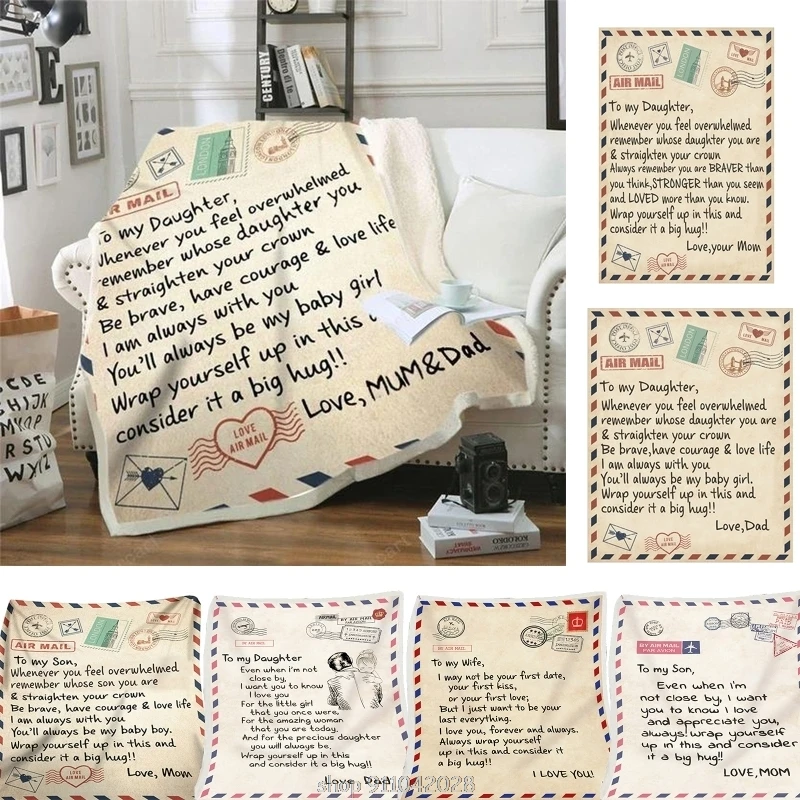 CENTURY
LONDON
R MAIL
To my Daughter,
Whenever you feel overwhelmed
remember whose daughter you
& straighten your crown
Be brave, have courage & love life
I am always with you
You'll always be my baby girl
Wrap yourself up in this
consider it a big hug!!
Love, MUM&Dad
LOVE
AIR MAIL
LONDON
AIR MAIL
To my Daughter,
Whenever you feel overwhelmed
remember whose daughter you are
& straighten your crown
Always remember you are BRAVER than
you think,STRONGER than you seem
and LOVED more than you know.
Wrap yourself up in this and
consider it a big hug!!
Love,your Mom
LOVE
AIR MAIL
LONDON
AIR MAIL
To my Daughter,
Whenever you feel overwhelmed
remember whose daughter you are
& straighten your crown
Be brave,have courage & love life
I am always with you
You'll always be my baby girl.
Wrap yourself up in this and
consider it a big hug!!
Love,Dad
LOVE
AIR MAIL
AIR MAIL
To my Son,
Whenever you feel overwhelmed
remember whose son you are
& straighten your crown
Be brave, have courage & love life
I am always with you
You'll always be my baby boy.
Wrap yourself up in this and
consider it a big hug!!
Love, Mom
To my Daughter
Even when i'm not
close by,
I want you to know
I love you
For the little girl
that you once were,
For the amazing woman
that you are today,
And for the precious daughter
you will always be.
Wrap yourself up in this
and consider it a big hug!!
Love, Dad
To my Wife,
I may not be your first date,
your first kiss,
or your first love;
But I just want to be your
last everything.
I love you, forever and always.
Always wrap yourself
up in this and consider it
a big hug!!
I LOVE YOU!
BY AIR MAIL
PAR AVION
To my Son,
Even when i'm
not close by, I want
you to know I love
and appreciate you,
always!wrap yourself
up in this and consider
it a big hug!!
Love,MOM
shop 911042028